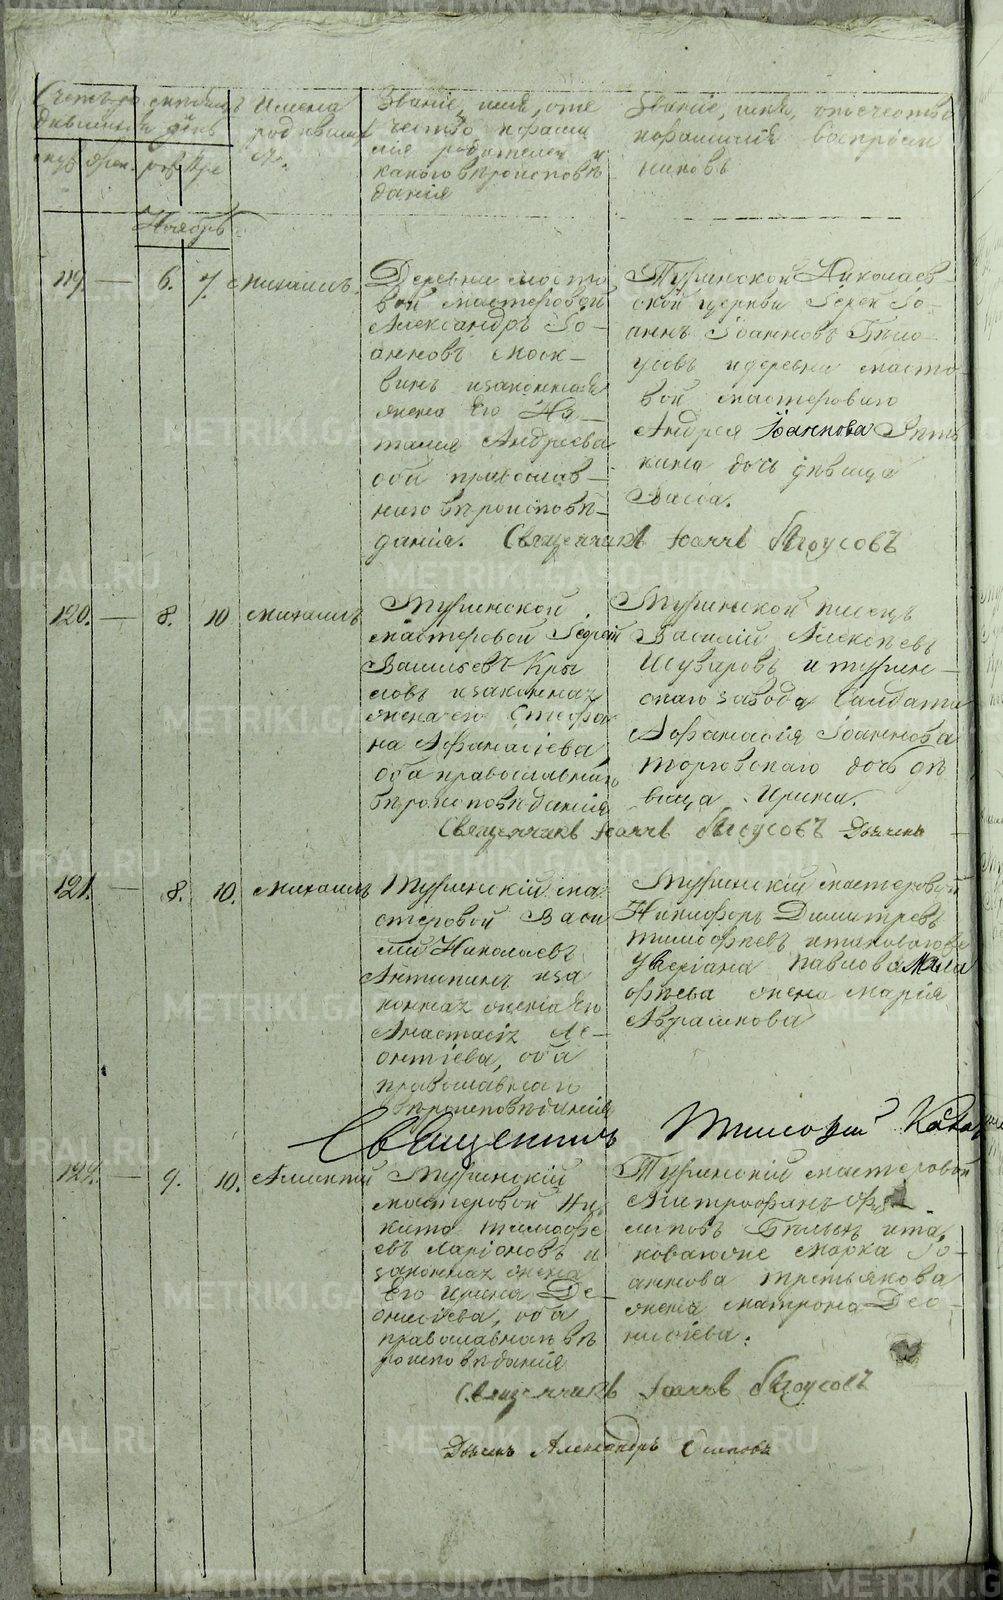 Званіе, имя, оте
Званіе, имя, отечество
Имена
чество и фами
и фамилія воспріем
лія родителей и
никовъ
какого вѣроисповѣ
данія
Ноябрь
119. — 6. 7. Михаилъ.
Деревни Мосто
вой мастеровой
Александръ Іо-
анновъ Моск-
винъ и законная
жена его На-
талія Андреева
оба православ-
наго вѣроисповѣ-
данія.
Туринской Николаев-
ской церкви Іерей Іо-
аннъ Іоанновъ Бѣло-
усовъ и деревни Мосто
вой мастероваго
Андрея Іоаннова
дочь дѣвица
Васса.
Священникъ Іоаннъ Бѣлоусовъ
120. — 8. 10 Михаилъ
Туринской
мастеровой
Васильевъ Кры
ловъ и законная
жена его Стефа
на Афанасіева
оба православнаго
вѣроисповѣданія
Туринской писецъ
Василій Алексѣевъ
Шуваровъ и турин-
скаго завода Салдата
Афанасія Іоаннова
Торговскаго дочь дѣ
вица Ирина.
Священникъ Іоаннъ Бѣлоусовъ Дьячекъ
121. — 8. 10. Михаилъ
Туринскій ма
стеровой Васи
лій Николаевъ
Антипинъ и за
конная жена его
Анастасія Ле-
онтіева, оба
православнаго
вѣроисповѣданія
Туринскій мастеровой
Никифоръ Димитревъ
Тимофеевъ и таковагоже
Уверіана Павлова Мала
фѣева жена Марія
Абрамкова
Священникъ Тимофей
122. — 9. 10. Алексѣй
Туринскій
мастеровой Ни
кита Тимофе
евъ Ларіоновъ и
законная жена
Его Ирина Де-
онисіева, оба
православнаго вѣ
роисповѣданія
Туринскій мастеровой
Митрофанъ Фи
липовъ и та
коваго же Марка Іо-
аннова Третьякова
жена Матрона Део-
нисіева.
Священникъ Іоаннъ Бѣлоусовъ
Дьячекъ Александръ Осиповъ
METRIKI.GASO-URAL.RU